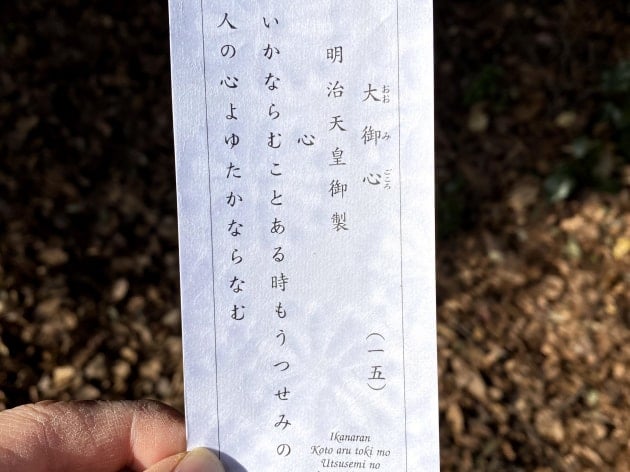 大御心
おおみごころ
(一五)
明治天皇御製
心
いかならむことある時もうつせみの
人の心よゆたかならなむ
Ikanaran
Koto aru toki mo
Utsusemi no